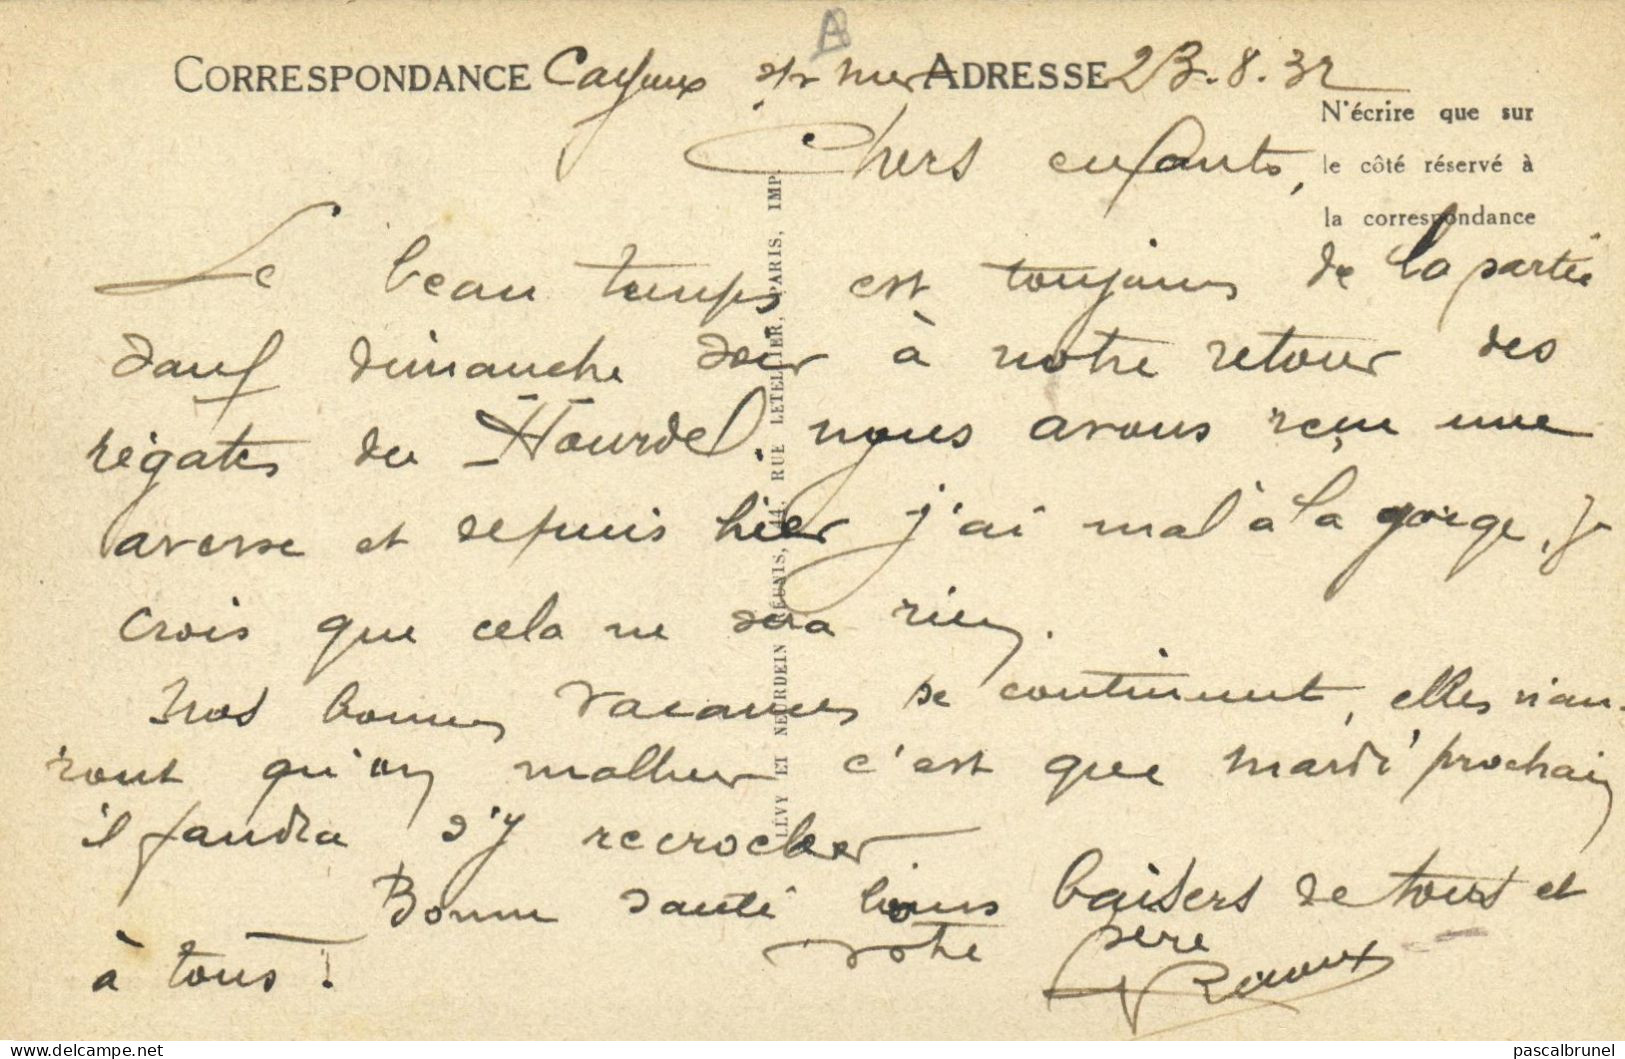 A
CORRESPONDANCE Cayeux s/r mer ADRESSE 23.8.32
N'écrire que sur
le côté réservé à
la correspondance
Chers enfants,
Le beau temps est toujours de la partie
sauf dimanche soir à notre retour des
régates du Hourdel, nous avons reçu une
averse et depuis hier j'ai mal à la gorge, je
crois que cela ne sera rien.
Nos bonnes vacances se continuent, elles n'au-
ront qu'un malheur c'est que mardi prochain
il faudra s'y recrocher
Bonne santé bons baisers de tous et
à tous !
votre père
LÉVY ET NEURDEIN RÉUNIS, 44, RUE LETELLIER, PARIS, IMP.
delcampe.net
pascalbrunel